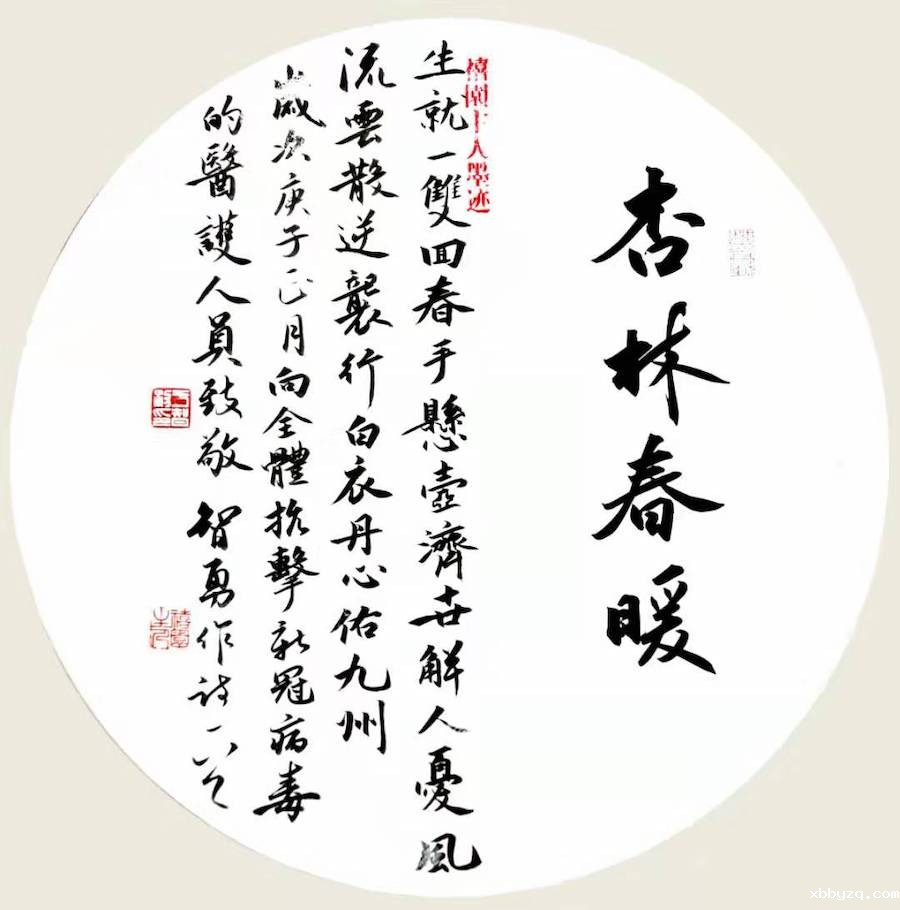 杏林春暖
禧園主人墨迹
生就一雙回春手懸壺濟世解人憂風
流雲散逆襲行白衣丹心佑九州
歲次庚子正月向全體抗擊新冠病毒
的醫護人員致敬 智勇作詩一首
xbbyzq.com